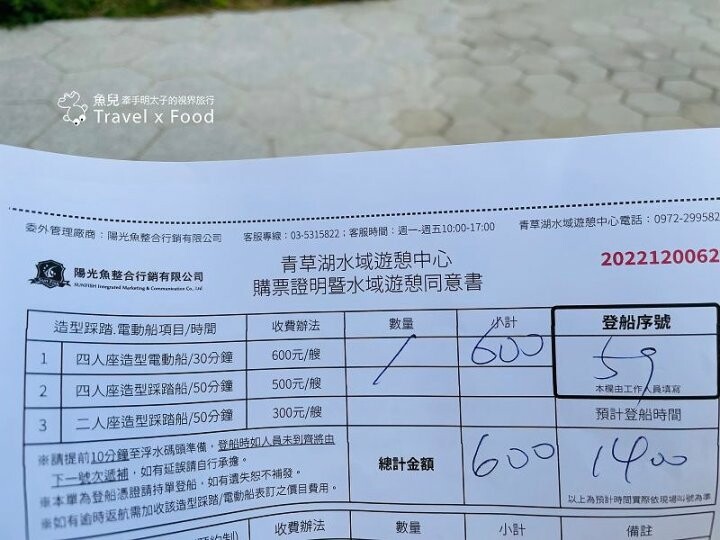 魚兒 牽手明太子的視界旅行
Travel x Food
委外管理廠商：陽光魚整合行銷有限公司 客服專線：03-5315822；客服時間：週一-週五10:00-17:00 青草湖水域遊憩中心電話：0972-299582
陽光魚整合行銷有限公司
SUNFISH Integrated Marketing & Communication Co., Ltd
青草湖水域遊憩中心
購票證明暨水域遊憩同意書
2022120062
造型踩踏.電動船項目/時間 收費辦法 數量 小計 登船序號
1 四人座造型電動船/30分鐘 600元/艘 1 600 59
2 四人座造型踩踏船/50分鐘 500元/艘 本欄由工作人員填寫
3 二人座造型踩踏船/50分鐘 300元/艘 預計登船時間
※請提前10分鐘至浮水碼頭準備，登船時如人員未到齊將由
下一號次遞補，如有延誤請自行承擔。
※本單為登船憑證請持單登船，如有遺失恕不補發。
※如有逾時返航需加收該造型踩踏/電動船表訂之價目費用。
總計金額 600 1400
以上為預計時間實際依現場叫號為準
收費辦法 數量 小計 備註